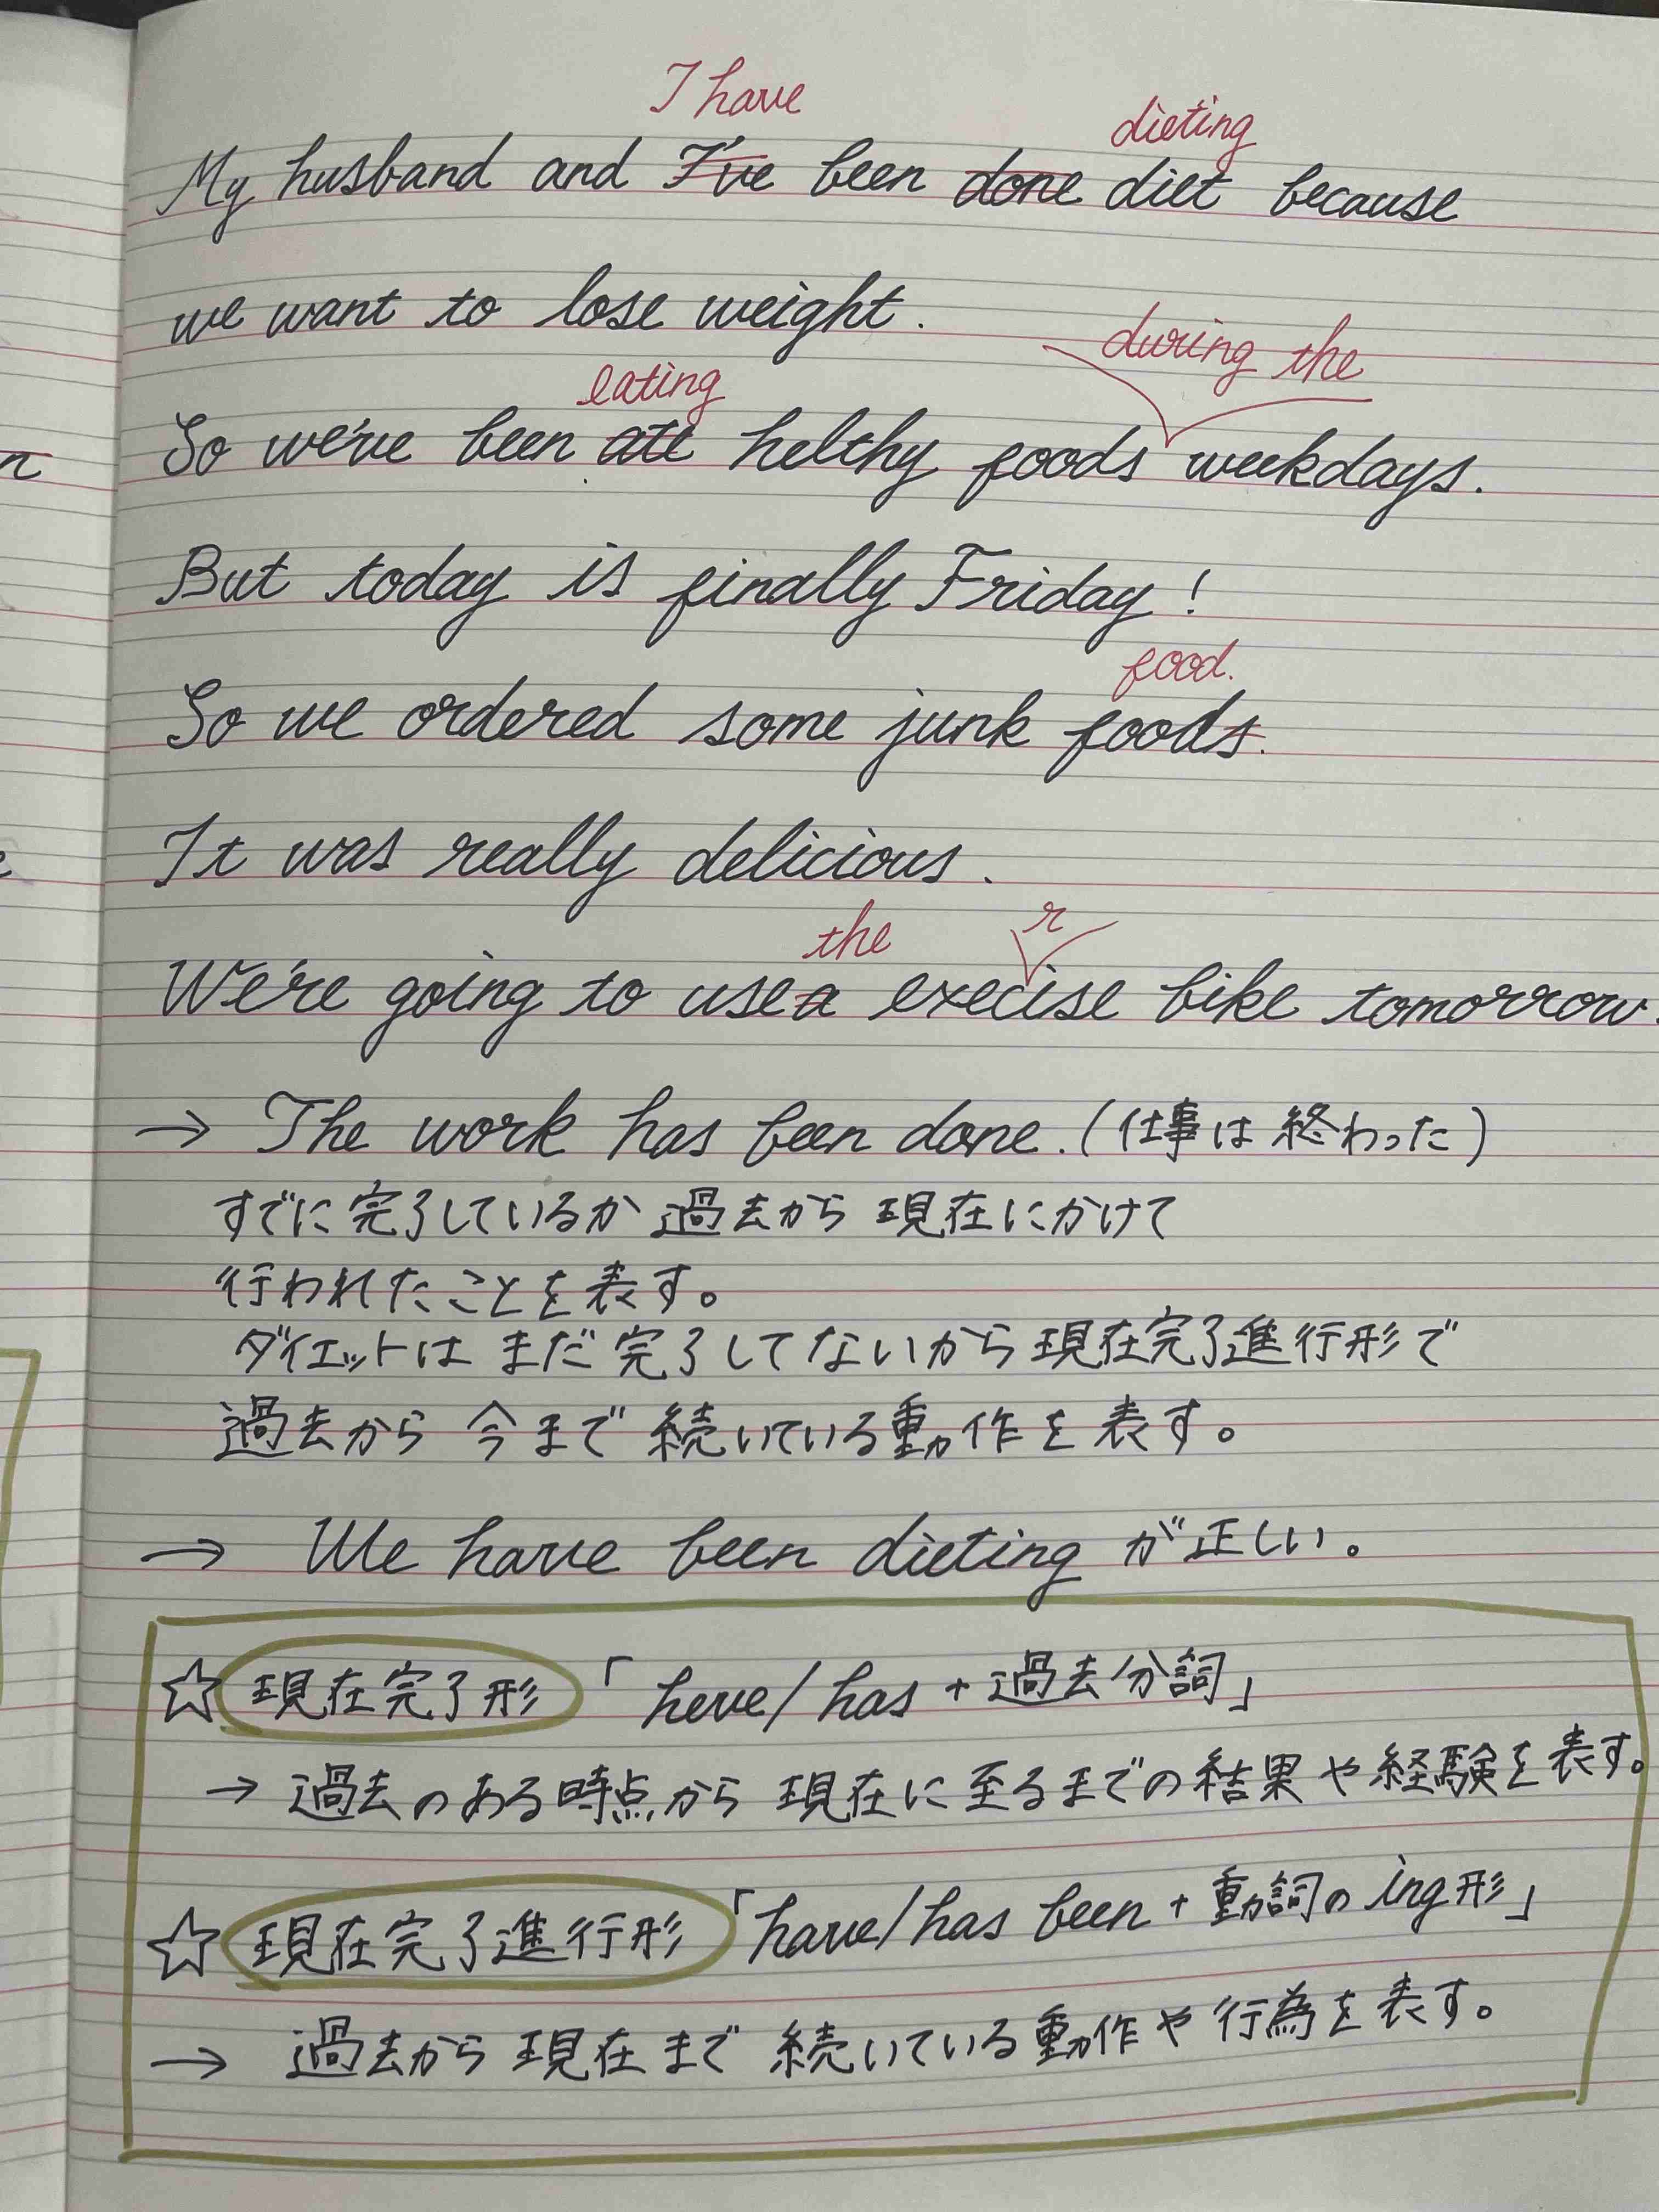 I have
dieting
My husband and I've been done diet because
we want to lose weight.
during the
eating
So we've been ate helthy foods weekdays.
But today is finally Friday!
food.
So we ordered some junk foods.
It was really delicious.
the r
We're going to use a execise bike tomorrow.
→ The work has been done. (仕事は終わった)
すでに完了しているか過去から現在にかけて
行われたことを表す。
ダイエットはまだ完了してないから現在完了進行形で
過去から今まで続いている動作を表す。
→ We have been dieting が正しい。
☆現在完了形「heve/has + 過去分詞」
→ 過去のある時点から現在に至るまでの結果や経験を表す。
☆現在完了進行形「have/has been + 動詞のing形」
→ 過去から現在まで続いている動作や行為を表す。